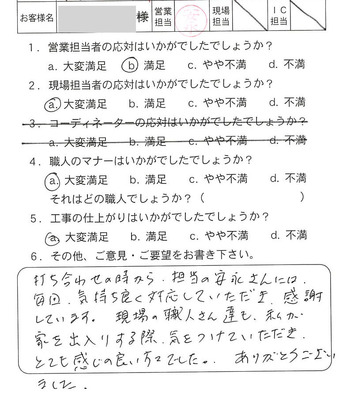 お客様名 様 営業担当 現場担当 IC担当
1. 営業担当者の応対はいかがでしたでしょうか？
a. 大変満足 b. 満足 c. やや不満 d. 不満
2. 現場担当者の応対はいかがでしたでしょうか？
a. 大変満足 b. 満足 c. やや不満 d. 不満
3. コーディネーターの応対はいかがでしたでしょうか？
a. 大変満足 b. 満足 c. やや不満 d. 不満
4. 職人のマナーはいかがでしたでしょうか？
a. 大変満足 b. 満足 c. やや不満 d. 不満
それはどの職人でしょうか？（ ）
5. 工事の仕上がりはいかがでしたでしょうか？
a. 大変満足 b. 満足 c. やや不満 d. 不満
6. その他、ご意見・ご要望をお書き下さい。
打ち合わせの時から、担当の安永さんには、
毎回、気持ち良く対応していただき、感謝
しています。現場の職人さん達も、私が
家を出入りする際、気をつけていただき、
とても感じの良い方々でした。ありがとうござい
ました。